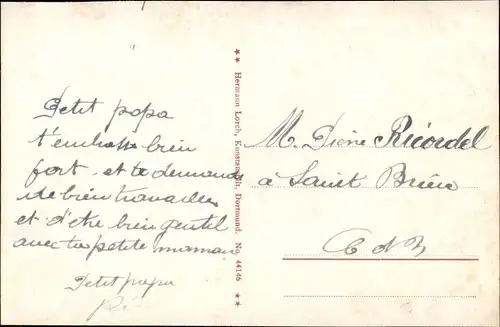 Petit papa
t'embrasse bien
fort et te demande
de bien travailler
et d'être bien gentil
avec ta petite maman
Petit papa
** Hermann Lorch, Kunstanstalt, Dortmund. No. 44146 **
M. Ricordel
à Saint Brieuc
C d N